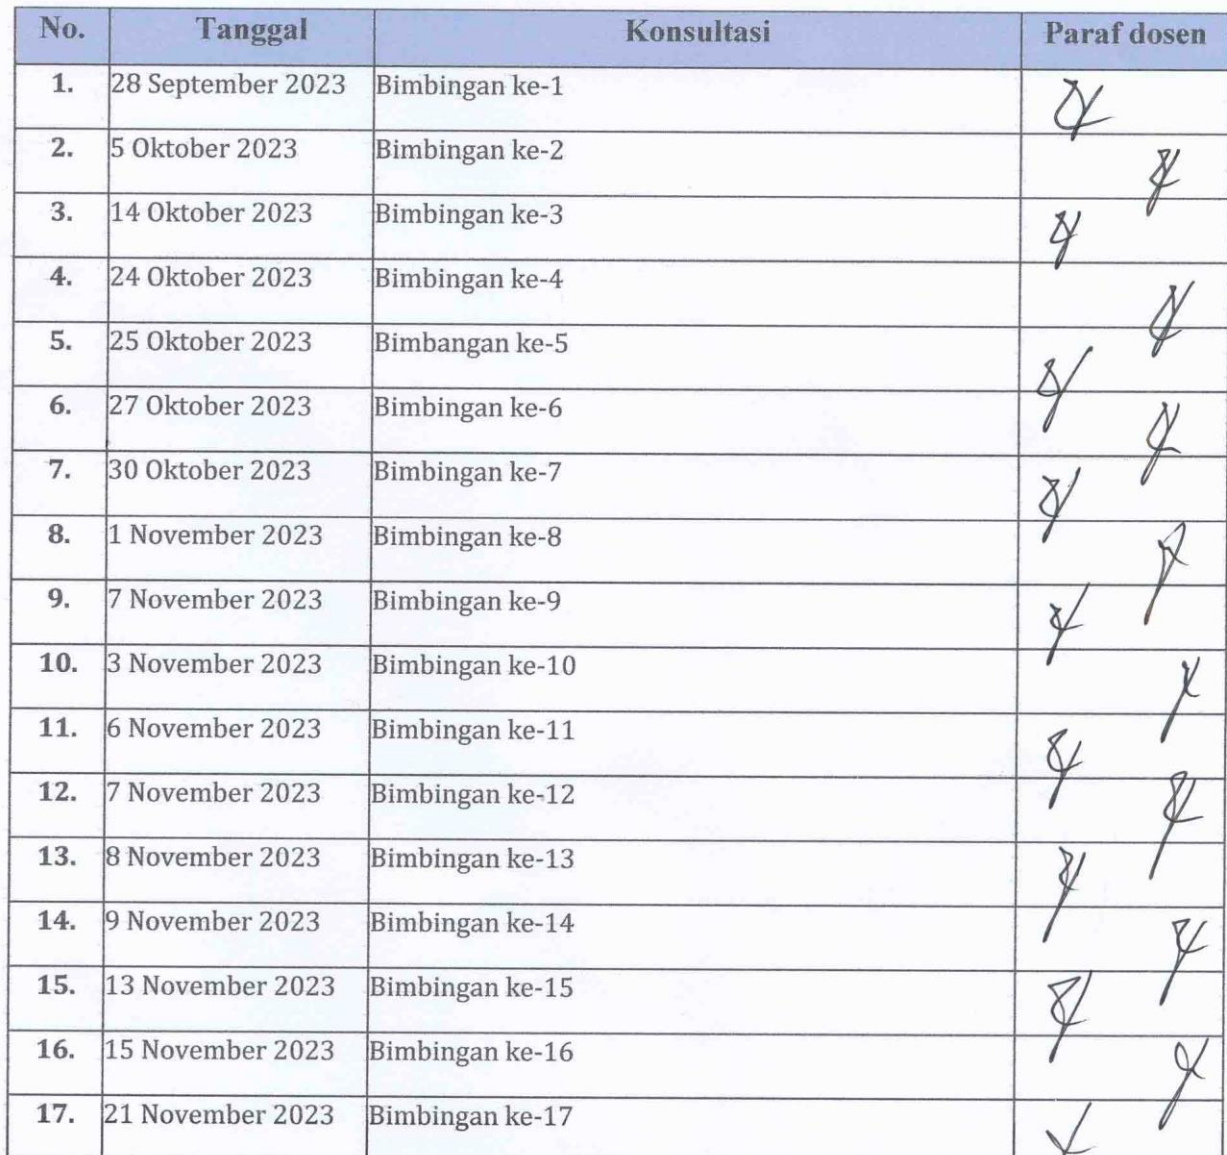 No. Tanggal Konsultasi Paraf dosen
1. 28 September 2023 Bimbingan ke-1
2. 5 Oktober 2023 Bimbingan ke-2
3. 14 Oktober 2023 Bimbingan ke-3
4. 24 Oktober 2023 Bimbingan ke-4
5. 25 Oktober 2023 Bimbangan ke-5
6. 27 Oktober 2023 Bimbingan ke-6
7. 30 Oktober 2023 Bimbingan ke-7
8. 1 November 2023 Bimbingan ke-8
9. 7 November 2023 Bimbingan ke-9
10. 3 November 2023 Bimbingan ke-10
11. 6 November 2023 Bimbingan ke-11
12. 7 November 2023 Bimbingan ke-12
13. 8 November 2023 Bimbingan ke-13
14. 9 November 2023 Bimbingan ke-14
15. 13 November 2023 Bimbingan ke-15
16. 15 November 2023 Bimbingan ke-16
17. 21 November 2023 Bimbingan ke-17